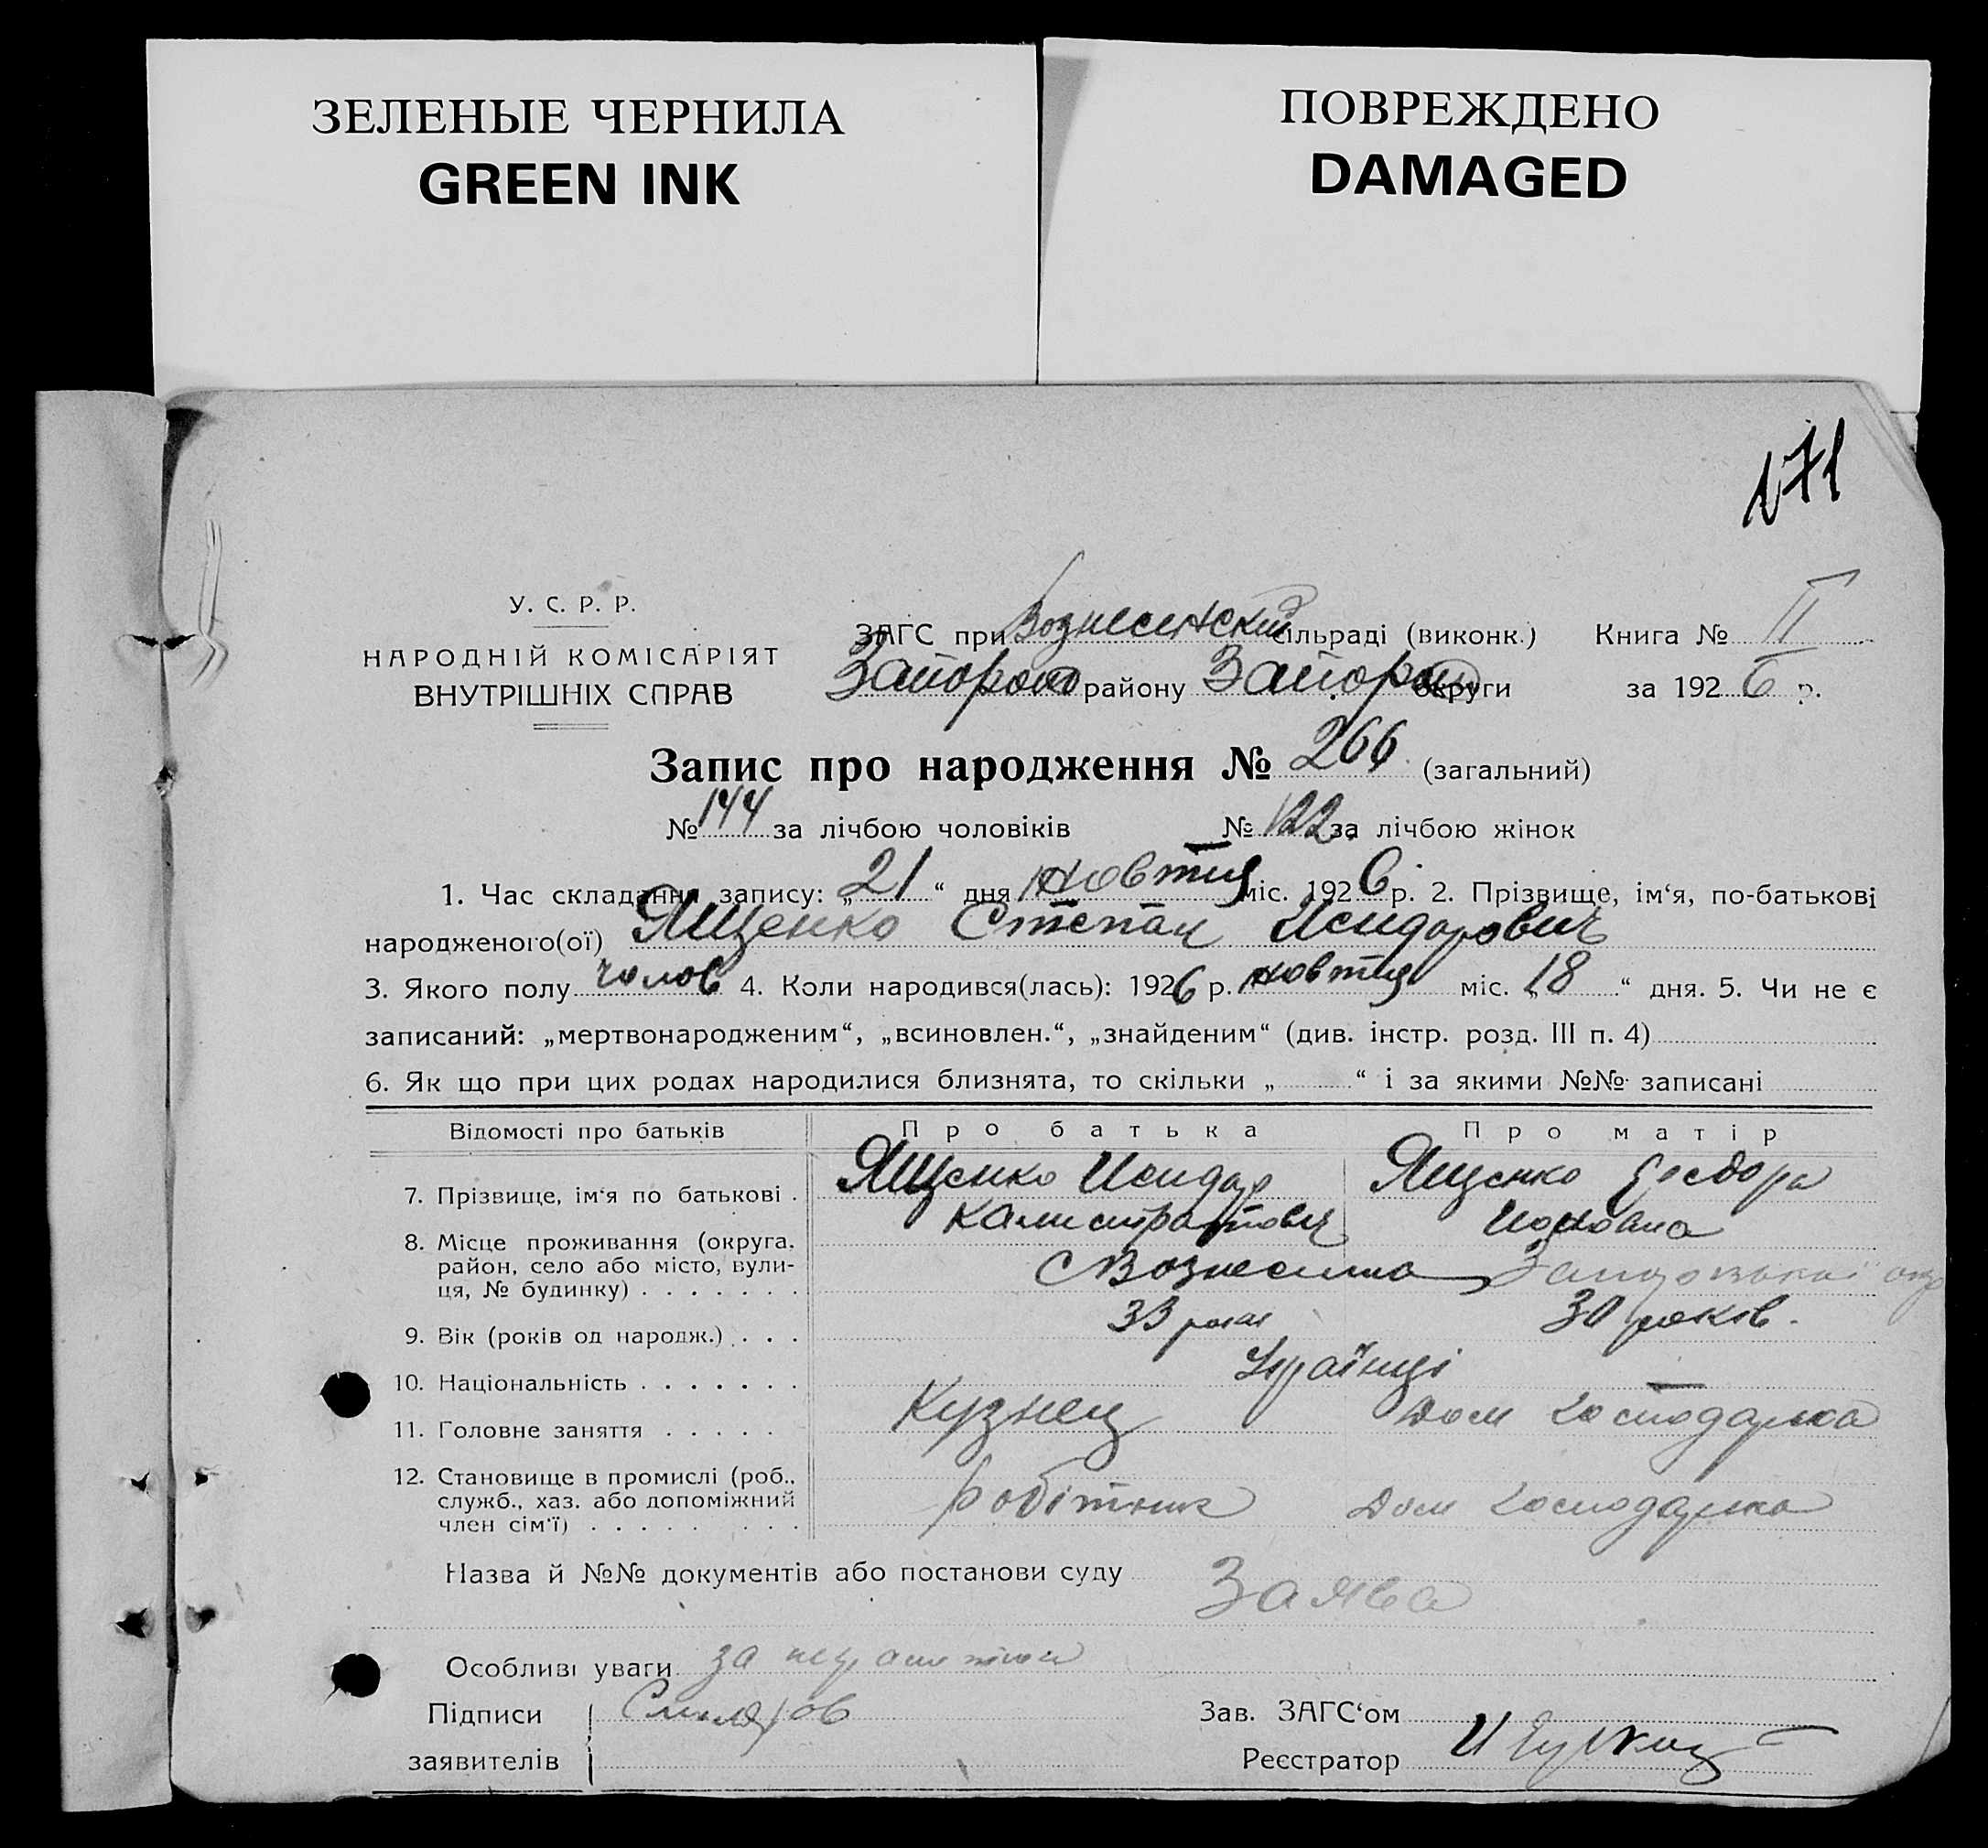 ЗЕЛЕНЫЕ ЧЕРНИЛА
GREEN INK
ПОВРЕЖДЕНО
DAMAGED
171
У. С. Р. Р.
НАРОДНІЙ КОМІСАРІЯТ
ВНУТРІШНІХ СПРАВ
ЗАГС при Вознесенский сільраді (виконк.) Книга № II
Запороз району Запороз округи за 1926 р.
Запис про народження № 266 (загальний)
№ 144 за лічбою чоловіків № 122 за лічбою жінок
1. Час складання запису: „21“ дня жовтня міс. 1926 р. 2. Прізвище, ім‘я, по-батькові
народженого(ої) Ященко Степан Исидорович
3. Якого полу чолов 4. Коли народився(лась): 1926 р. жовтня міс. „18“ дня. 5. Чи не є
записаний: „мертвонародженим“, „всиновлен.“, „знайденим“ (див. інстр. розд. III п. 4)
6. Як що при цих родах народилися близнята, то скільки „ “ і за якими №№ записані
Відомості про батьків Про батька Про матір
7. Прізвище, ім‘я по батькові . Ященко Исидор Калистратович Ященко Феодора
8. Місце проживання (округа, район, село або місто, вулиця, № будинку) . . . . . . . с Вознесенка
9. Вік (років од народж.) . . . 33 роки 30 років.
10. Національність . . . . . . . Українці
11. Головне заняття . . . . . Кузнец Дом господарка
12. Становище в промислі (роб., служб., хаз. або допоміжний член сім‘ї) . . . . . . . . робітник Дом господарка
Назва й №№ документів або постанови суду Заява
Особливі уваги за
Підписи
заявителів
Зав. ЗАГС‘ом
Реєстратор